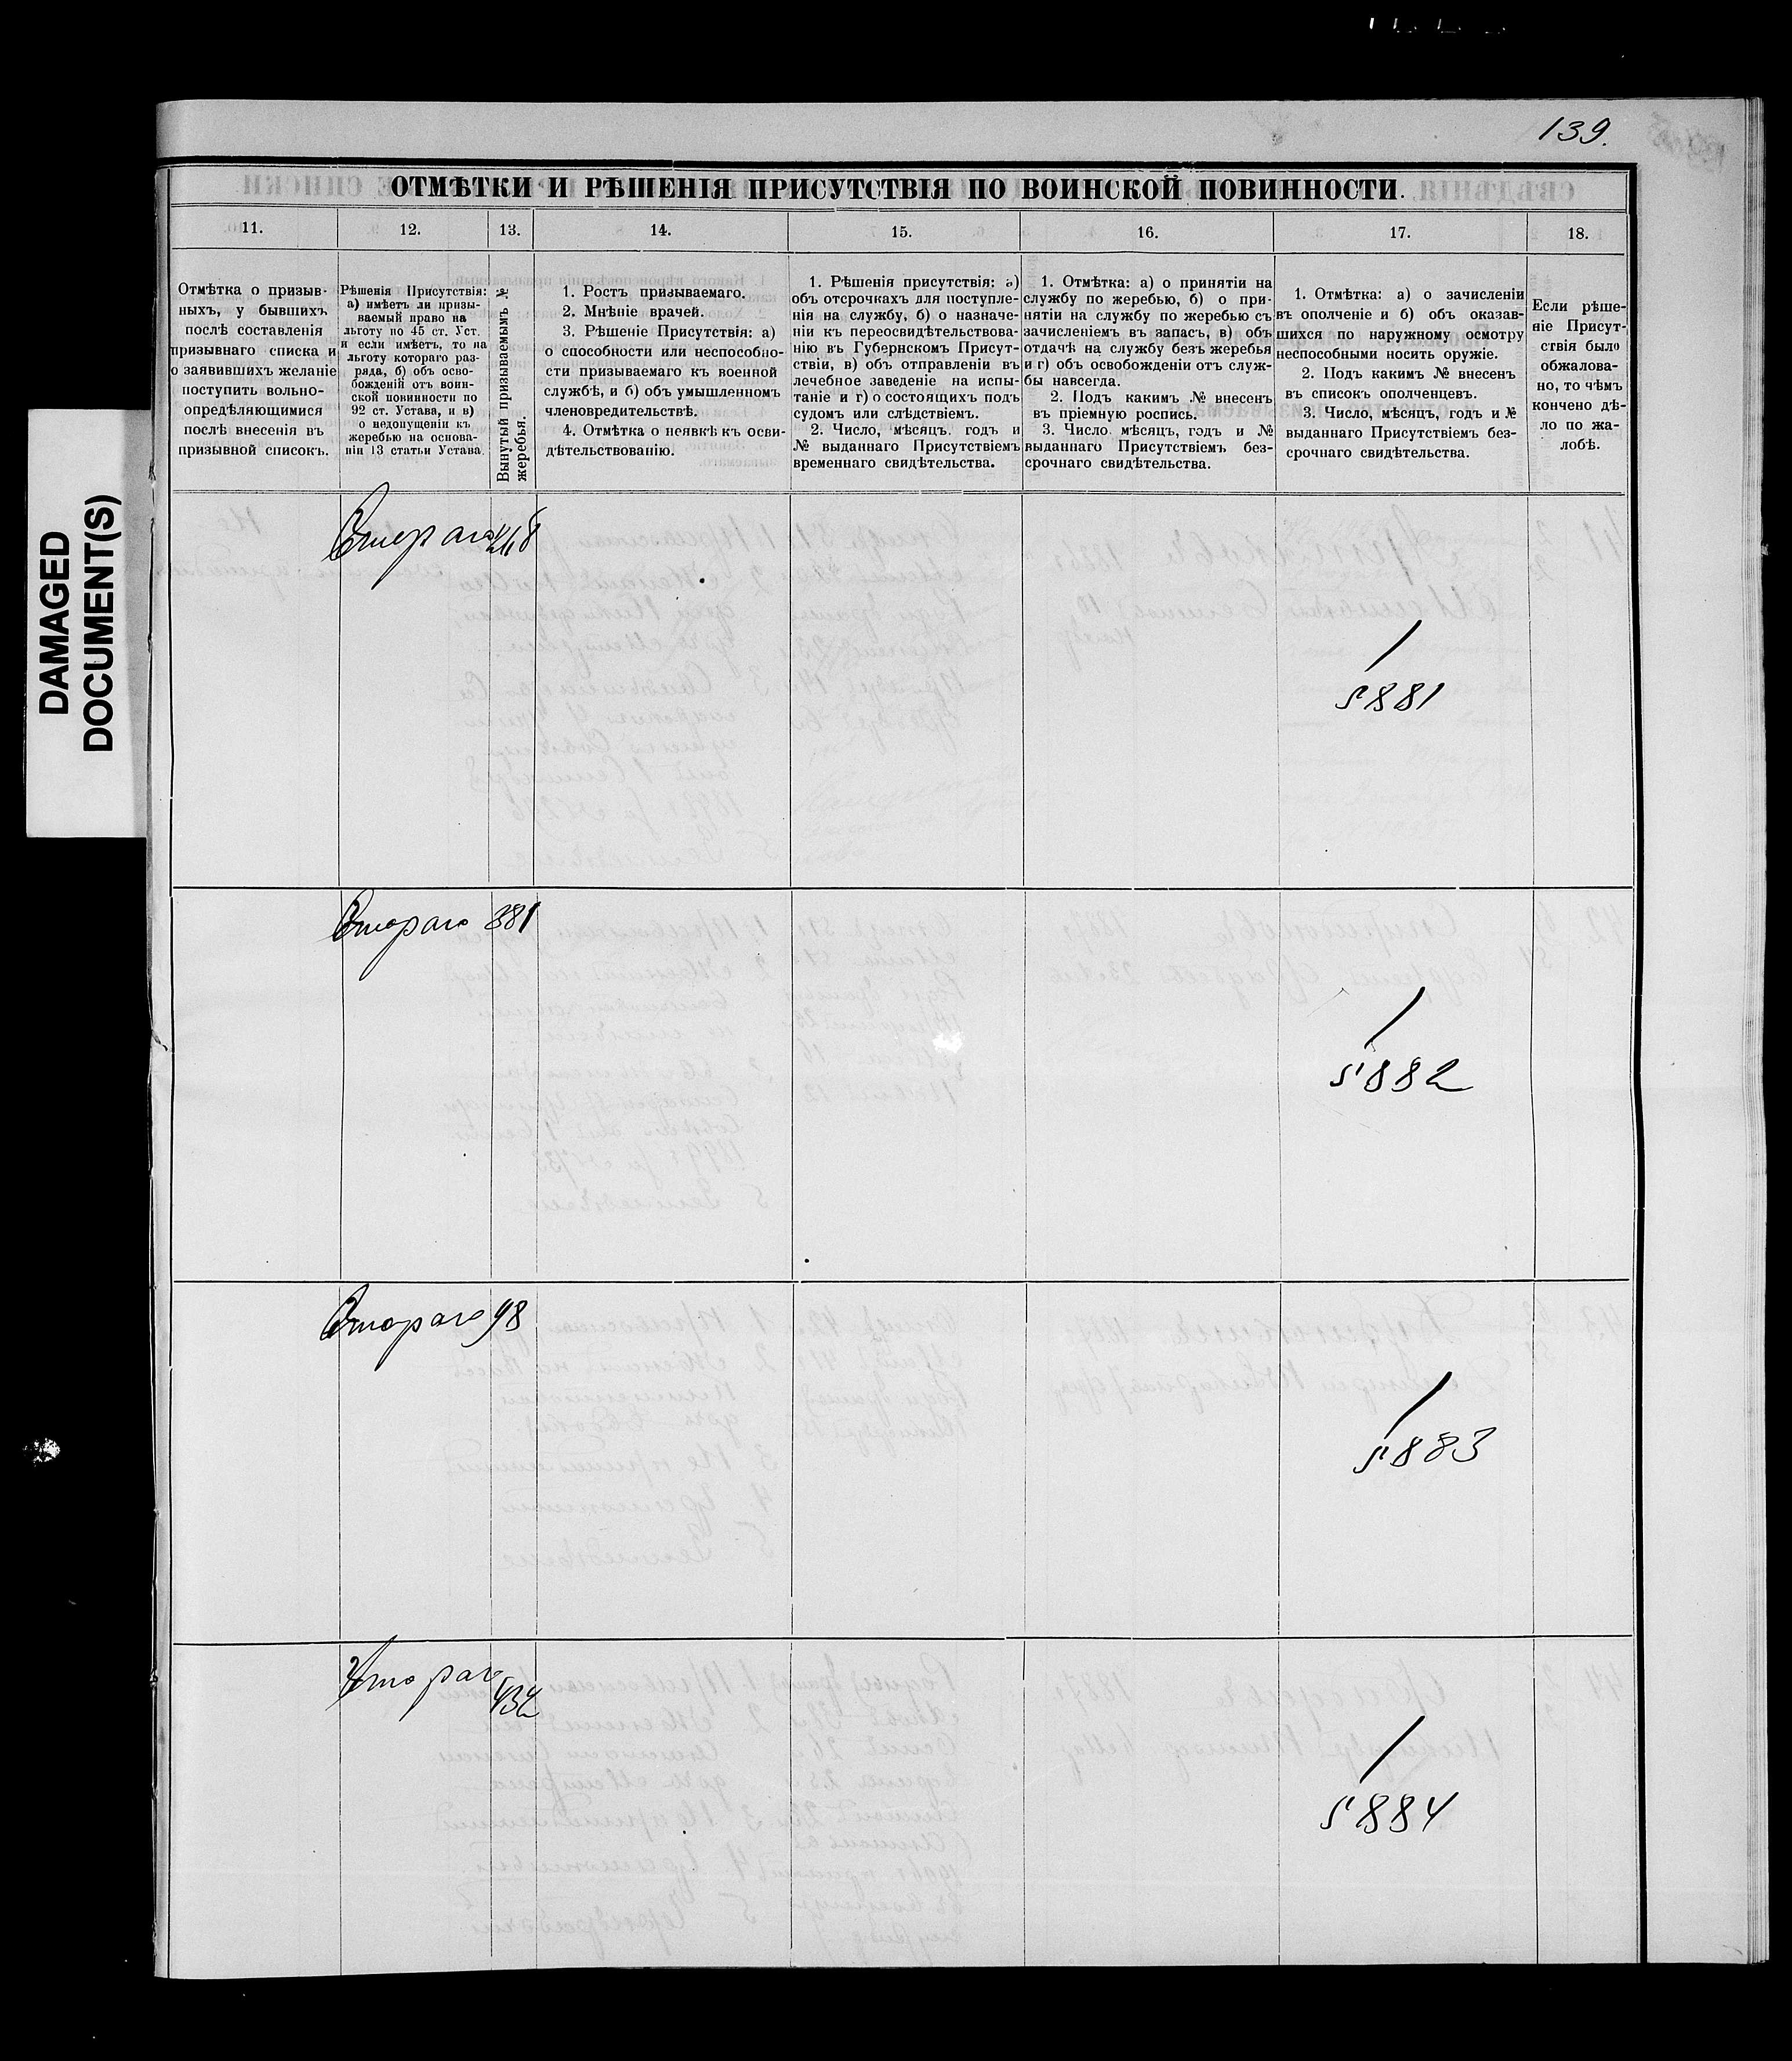 139.
DAMAGED
DOCUMENT(S)
ОТМѢТКИ И РѢШЕНІЯ ПРИСУТСТВІЯ ПО ВОИНСКОЙ ПОВИННОСТИ.
11.
12.
13.
14.
15.
16.
17.
18.
Отмѣтка о призыв-
ныхъ, у бывшихъ
послѣ составленія
призывнаго списка и
о заявившихъ желаніе
поступить вольно-
опредѣляющимися
послѣ внесенія въ
призывной списокъ.
Рѣшенія Присутствія:
а) имѣетъ ли призы-
ваемый право на
льготу по 45 ст. Уст.
и если имѣетъ, то на
льготу котораго раз-
ряда, б) объ осво-
божденіи отъ воин-
ской повинности по
92 ст. Устава, и в)
о недопущеніи къ
жеребью на основа-
ніи 13 статьи Устава.
Вынутый призываемымъ №
жеребья.
1. Ростъ призываемаго.
2. Мнѣніе врачей.
3. Рѣшеніе Присутствія: а)
о способности или неспособно-
сти призываемаго къ военной
службѣ, и б) объ умышленномъ
членовредительствѣ.
4. Отмѣтка о неявкѣ къ осви-
дѣтельствованію.
1. Рѣшенія присутствія: а)
объ отсрочкахъ для поступле-
нія на службу, б) о назначе-
ніи къ переосвидѣтельствова-
нію въ Губернскомъ Присут-
ствіи, в) объ отправленіи въ
лечебное заведеніе на испы-
таніе и г) о состоящихъ подъ
судомъ или слѣдствіемъ.
2. Число, мѣсяцъ. годъ и
№ выданнаго Присутствіемъ
временнаго свидѣтельства.
1. Отмѣтка: а) о принятіи на
службу по жеребью, б) о при-
нятіи на службу по жеребью съ
зачисленіемъ въ запасъ, в) объ
отдачѣ на службу безъ жеребья
и г) объ освобожденіи отъ служ-
бы навсегда.
2. Подъ какимъ № внесенъ
въ пріемную роспись.
3. Число мѣсяцъ, годъ и №
выданнаго Присутствіемъ без-
срочнаго свидѣтельства.
1. Отмѣтка: а) о зачисленіи
въ ополченіе и б) объ оказав-
шихся по наружному осмотру
неспособными носить оружіе.
2. Подъ какимъ № внесенъ
въ списокъ ополченцевъ.
3. Число, мѣсяцъ, годъ и №
выданнаго Присутствіемъ без-
срочнаго свидѣтельства.
Если рѣше-
ніе Присут-
ствія было
обжалова-
но, то чѣмъ
кончено дѣ-
ло по жа-
лобѣ.
Втораго
1
5881
Втораго 381
1
5882
Втораго 98
1
5883
Втораго
432
1
5884